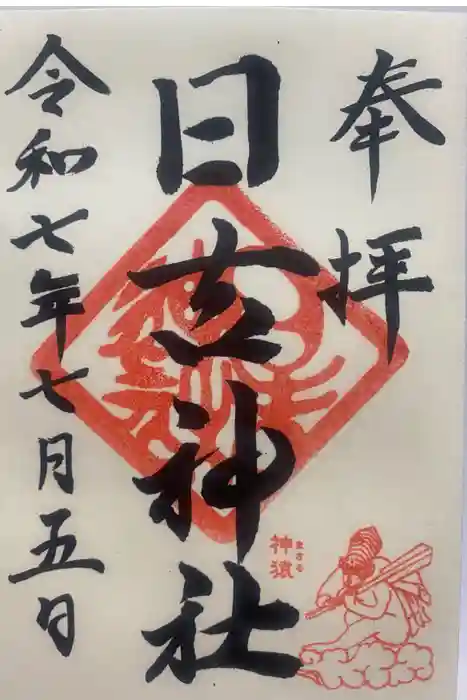 奉拝
日吉神社
神猿
まさる
令和七年七月五日